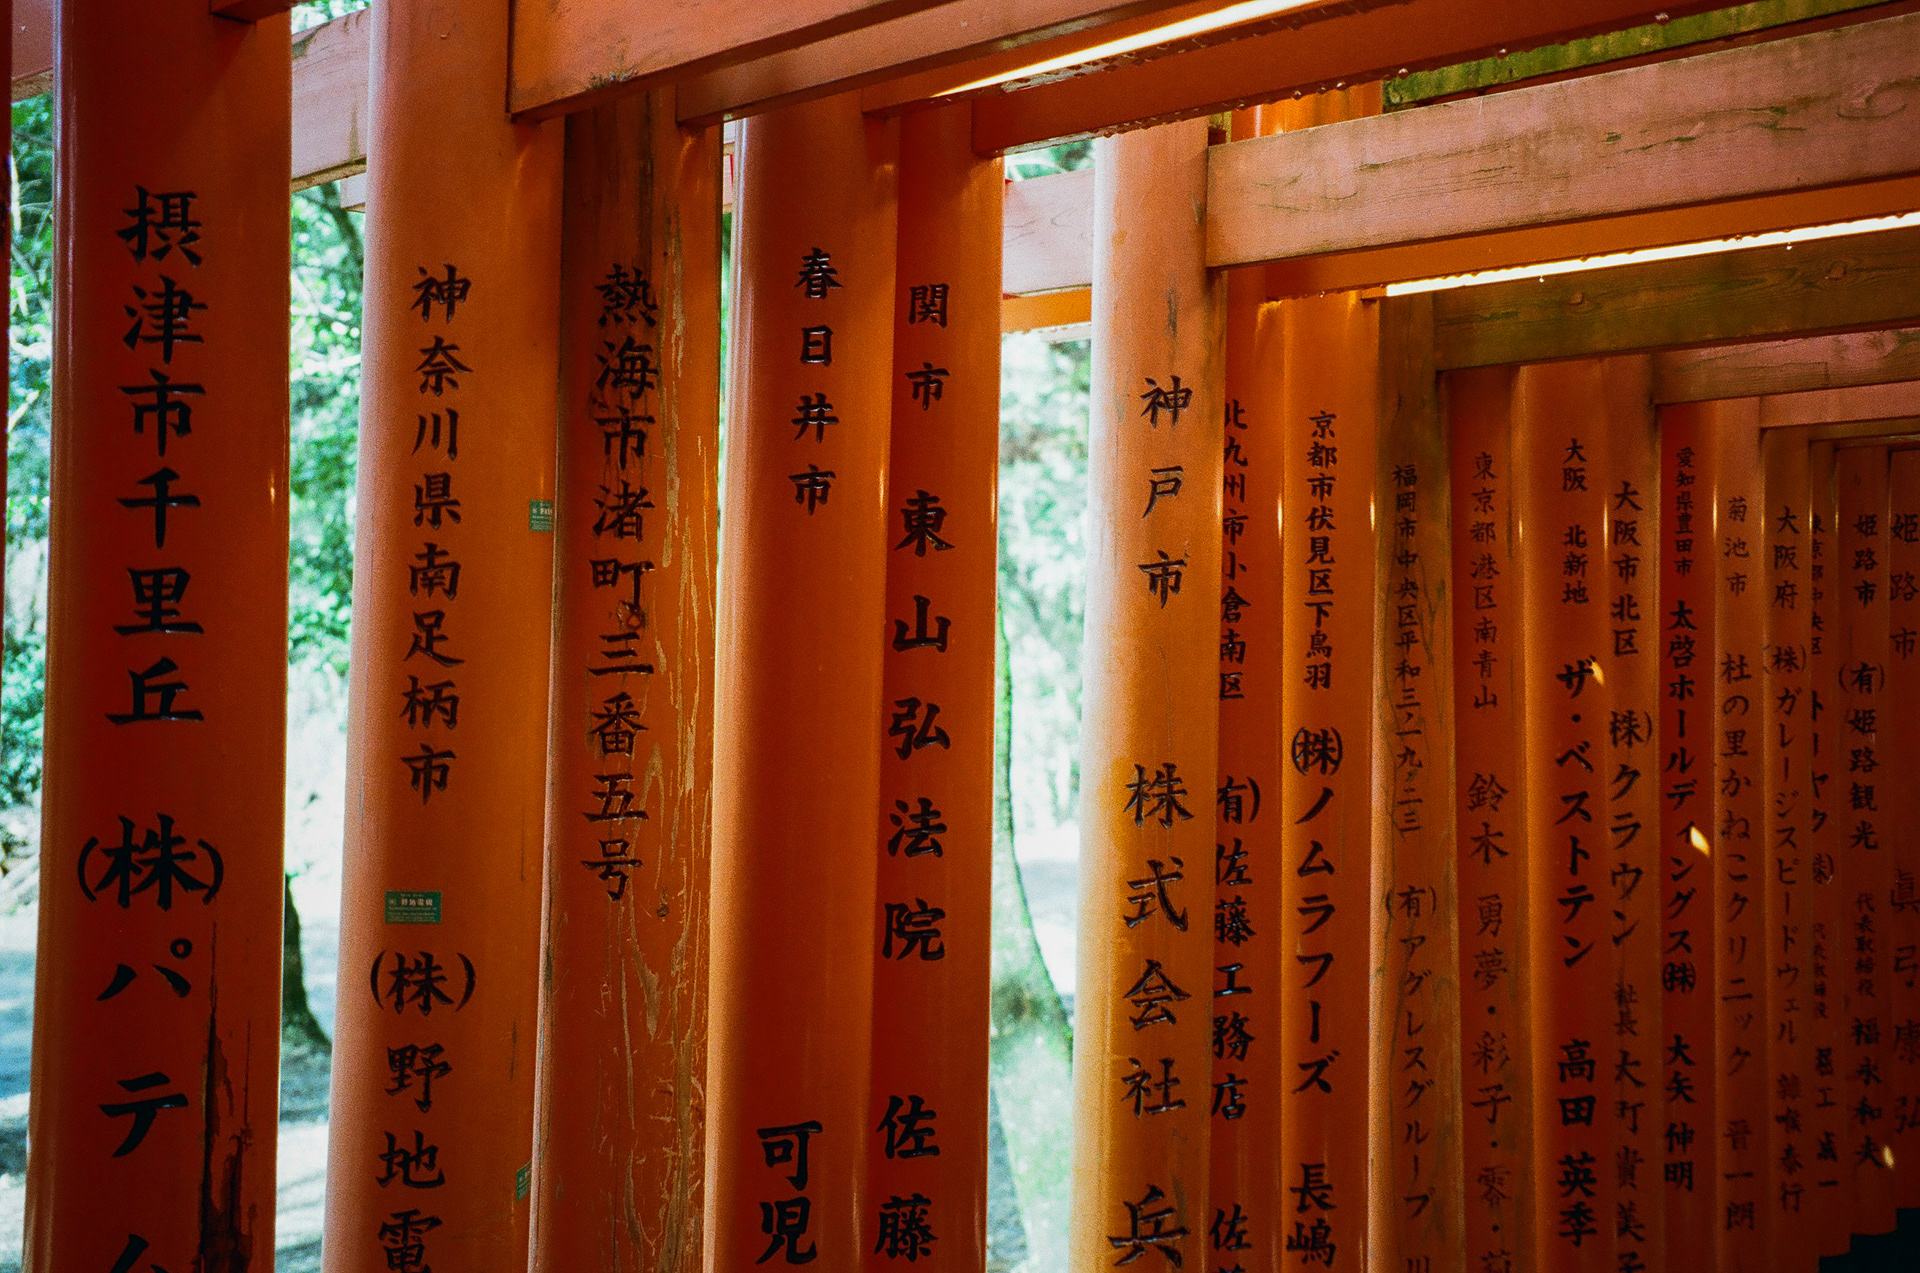 摂津市千里丘 (株)パテ
神奈川県南足柄市 (株)野地電
熱海市渚町三番五号
春日井市 可児
関市 東山弘法院 佐藤
神戸市 株式会社 兵
北九州市小倉南区 (有)佐藤工務店 佐
京都市伏見区下鳥羽 (株)ノムラフーズ 長嶋
福岡市中央区平和三ノ一九ノ二三 (有)アグレスグループ 川
東京都港区南青山 鈴木 勇夢・彩子・零・
大阪 北新地 ザ・ベストテン 高田 英季
大阪市北区 (株)クラウン 社長 大町 貴美子
愛知県豊田市 太啓ホールディングス(株) 大矢 伸明
菊池市 杜の里かねこクリニック 晋一朗
大阪府 (株)ガレージスピードウェル 泰行
東京都中央区 トーヤク(株) 代表取締役 堀工
姫路市 (有)姫路観光 代表取締役 福永和夫
姫路市 眞弓 康弘